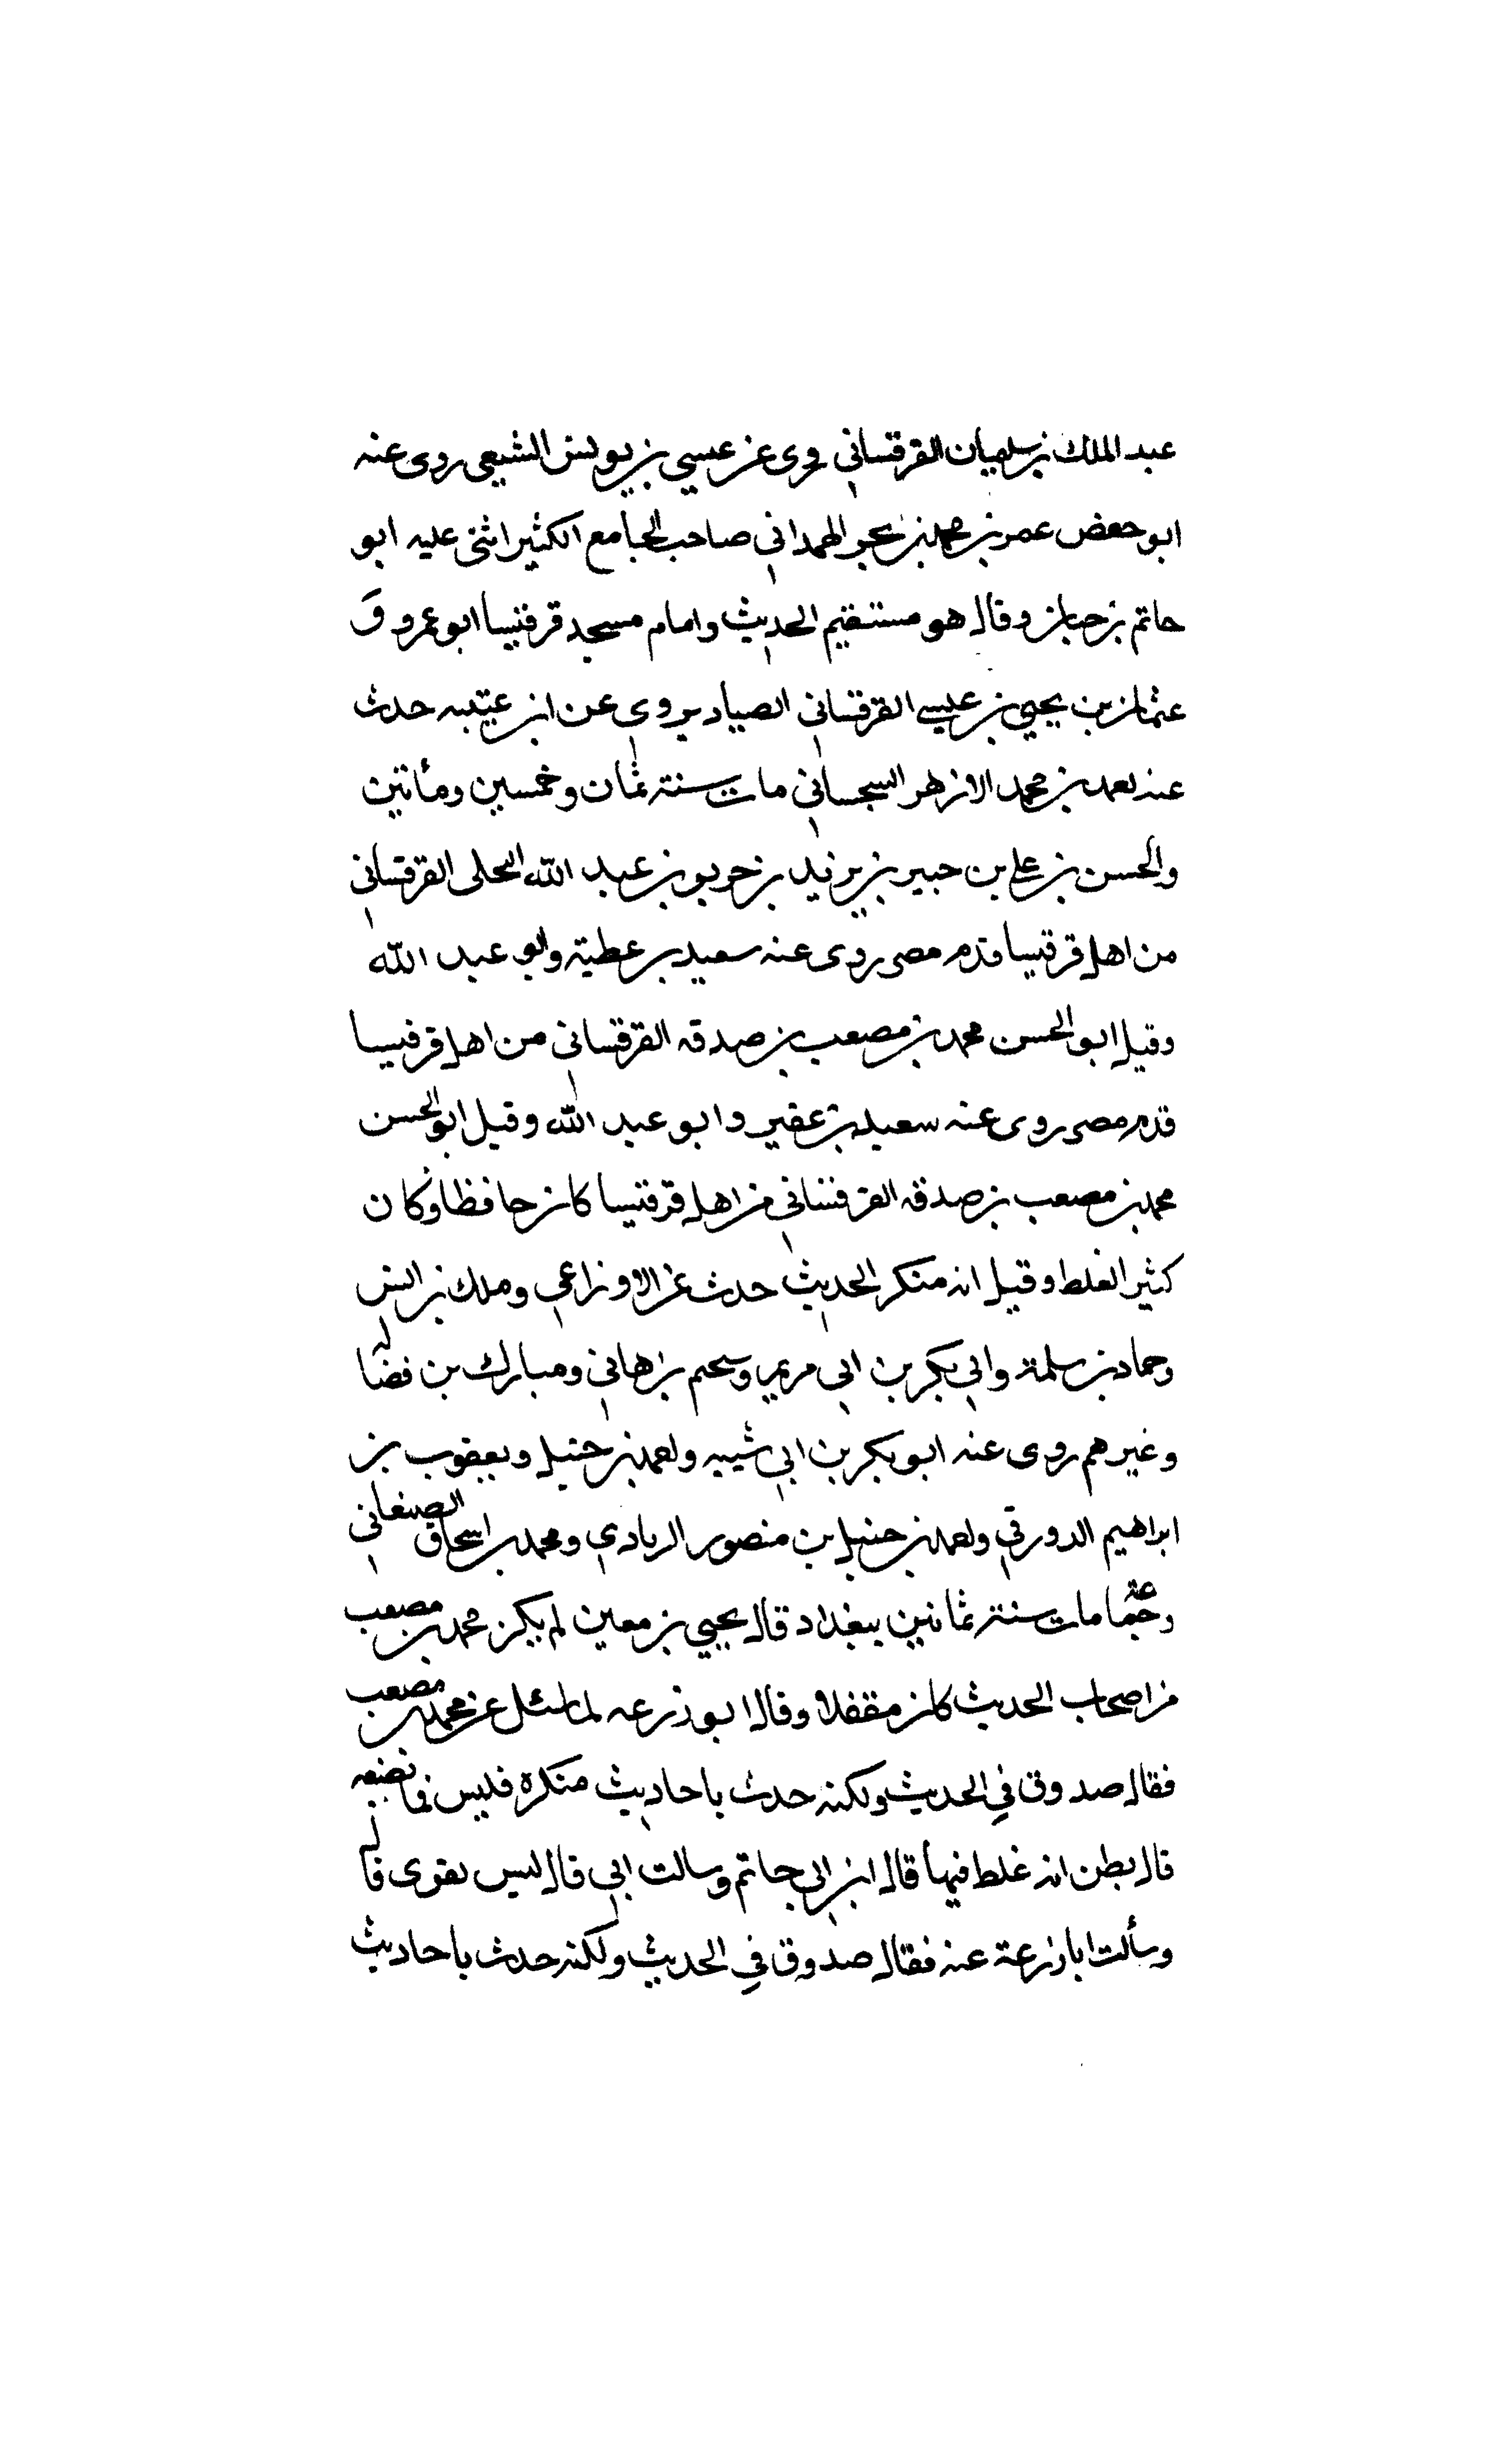 عبد الملك بن سليمان القرقساني روى عن عيسى بن يونس الشيعي روى عنه
ابو حفص عمر بن محمد بن بحير الهمداني صاحب الجامع الكثير اثنى عليه ابو
حاتم بن حبان وقال هو مستقيم الحديث وامام مسجد قرقيسا ابو عمرو و
عثمان بن يحيى بن عيسى القرقساني الصياد يروى عن ابن عيينه حدث
عنه احمد بن محمد الازهر السجساني مات سنة ثمان وخمسين ومأتين
والحسن بن علي بن جبير بن يزيد بن جرير بن عبد الله البجلى القرقساني
من اهل قرقيسا قدم مصر روى عنه سعيد بن عطية وابو عبد الله
وقيل ابو الحسن محمد بن مصعب بن صدقه القرقساني من اهل قرقيسا
قدم مصر روى عنه سعيد بن عفير وابو عبد الله وقيل ابو الحسن
محمد بن مصعب بن صدقه القرقساني من اهل قرقيسا كان حافظا وكان
كثير الغلط وقيل انه منكر الحديث حدث عن الاوزاعي وملك بن انس
وحماد بن سلمة وابي بكر بن ابي مريم وسحيم بن هاني ومبارك بن فضاله
وغيرهم روى عنه ابو بكر بن ابي شيبه واحمد بن حنبل ويعقوب بن
ابراهيم الدورقي واحمد بن حنبل بن منصور الرمادي ومحمد بن اسحاق الصنعاني
مات سنة ثمانين ببغداد قال يحيى بن معين لم يكن محمد بن مصعب
من اصحاب الحديث كان مقفلا وقال ابو زرعه لما سئل عن محمد بن مصعب
فقال صدوق في الحديث ولكنه حدث باحاديث منكرة فليس نما نضعه
قال يظن انه غلط فيها قال ابن ابي حاتم وسالت ابي قال ليس بقوى قال
وسألت ابا زرعة عنه فقال صدوق في الحديث ولكنه حدث باحاديث